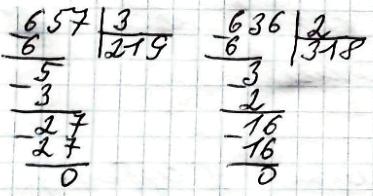 657 | 3
6 | 219
-5
3
-27
27
0
-636 | 2
6 | 318
-3
2
-16
16
0